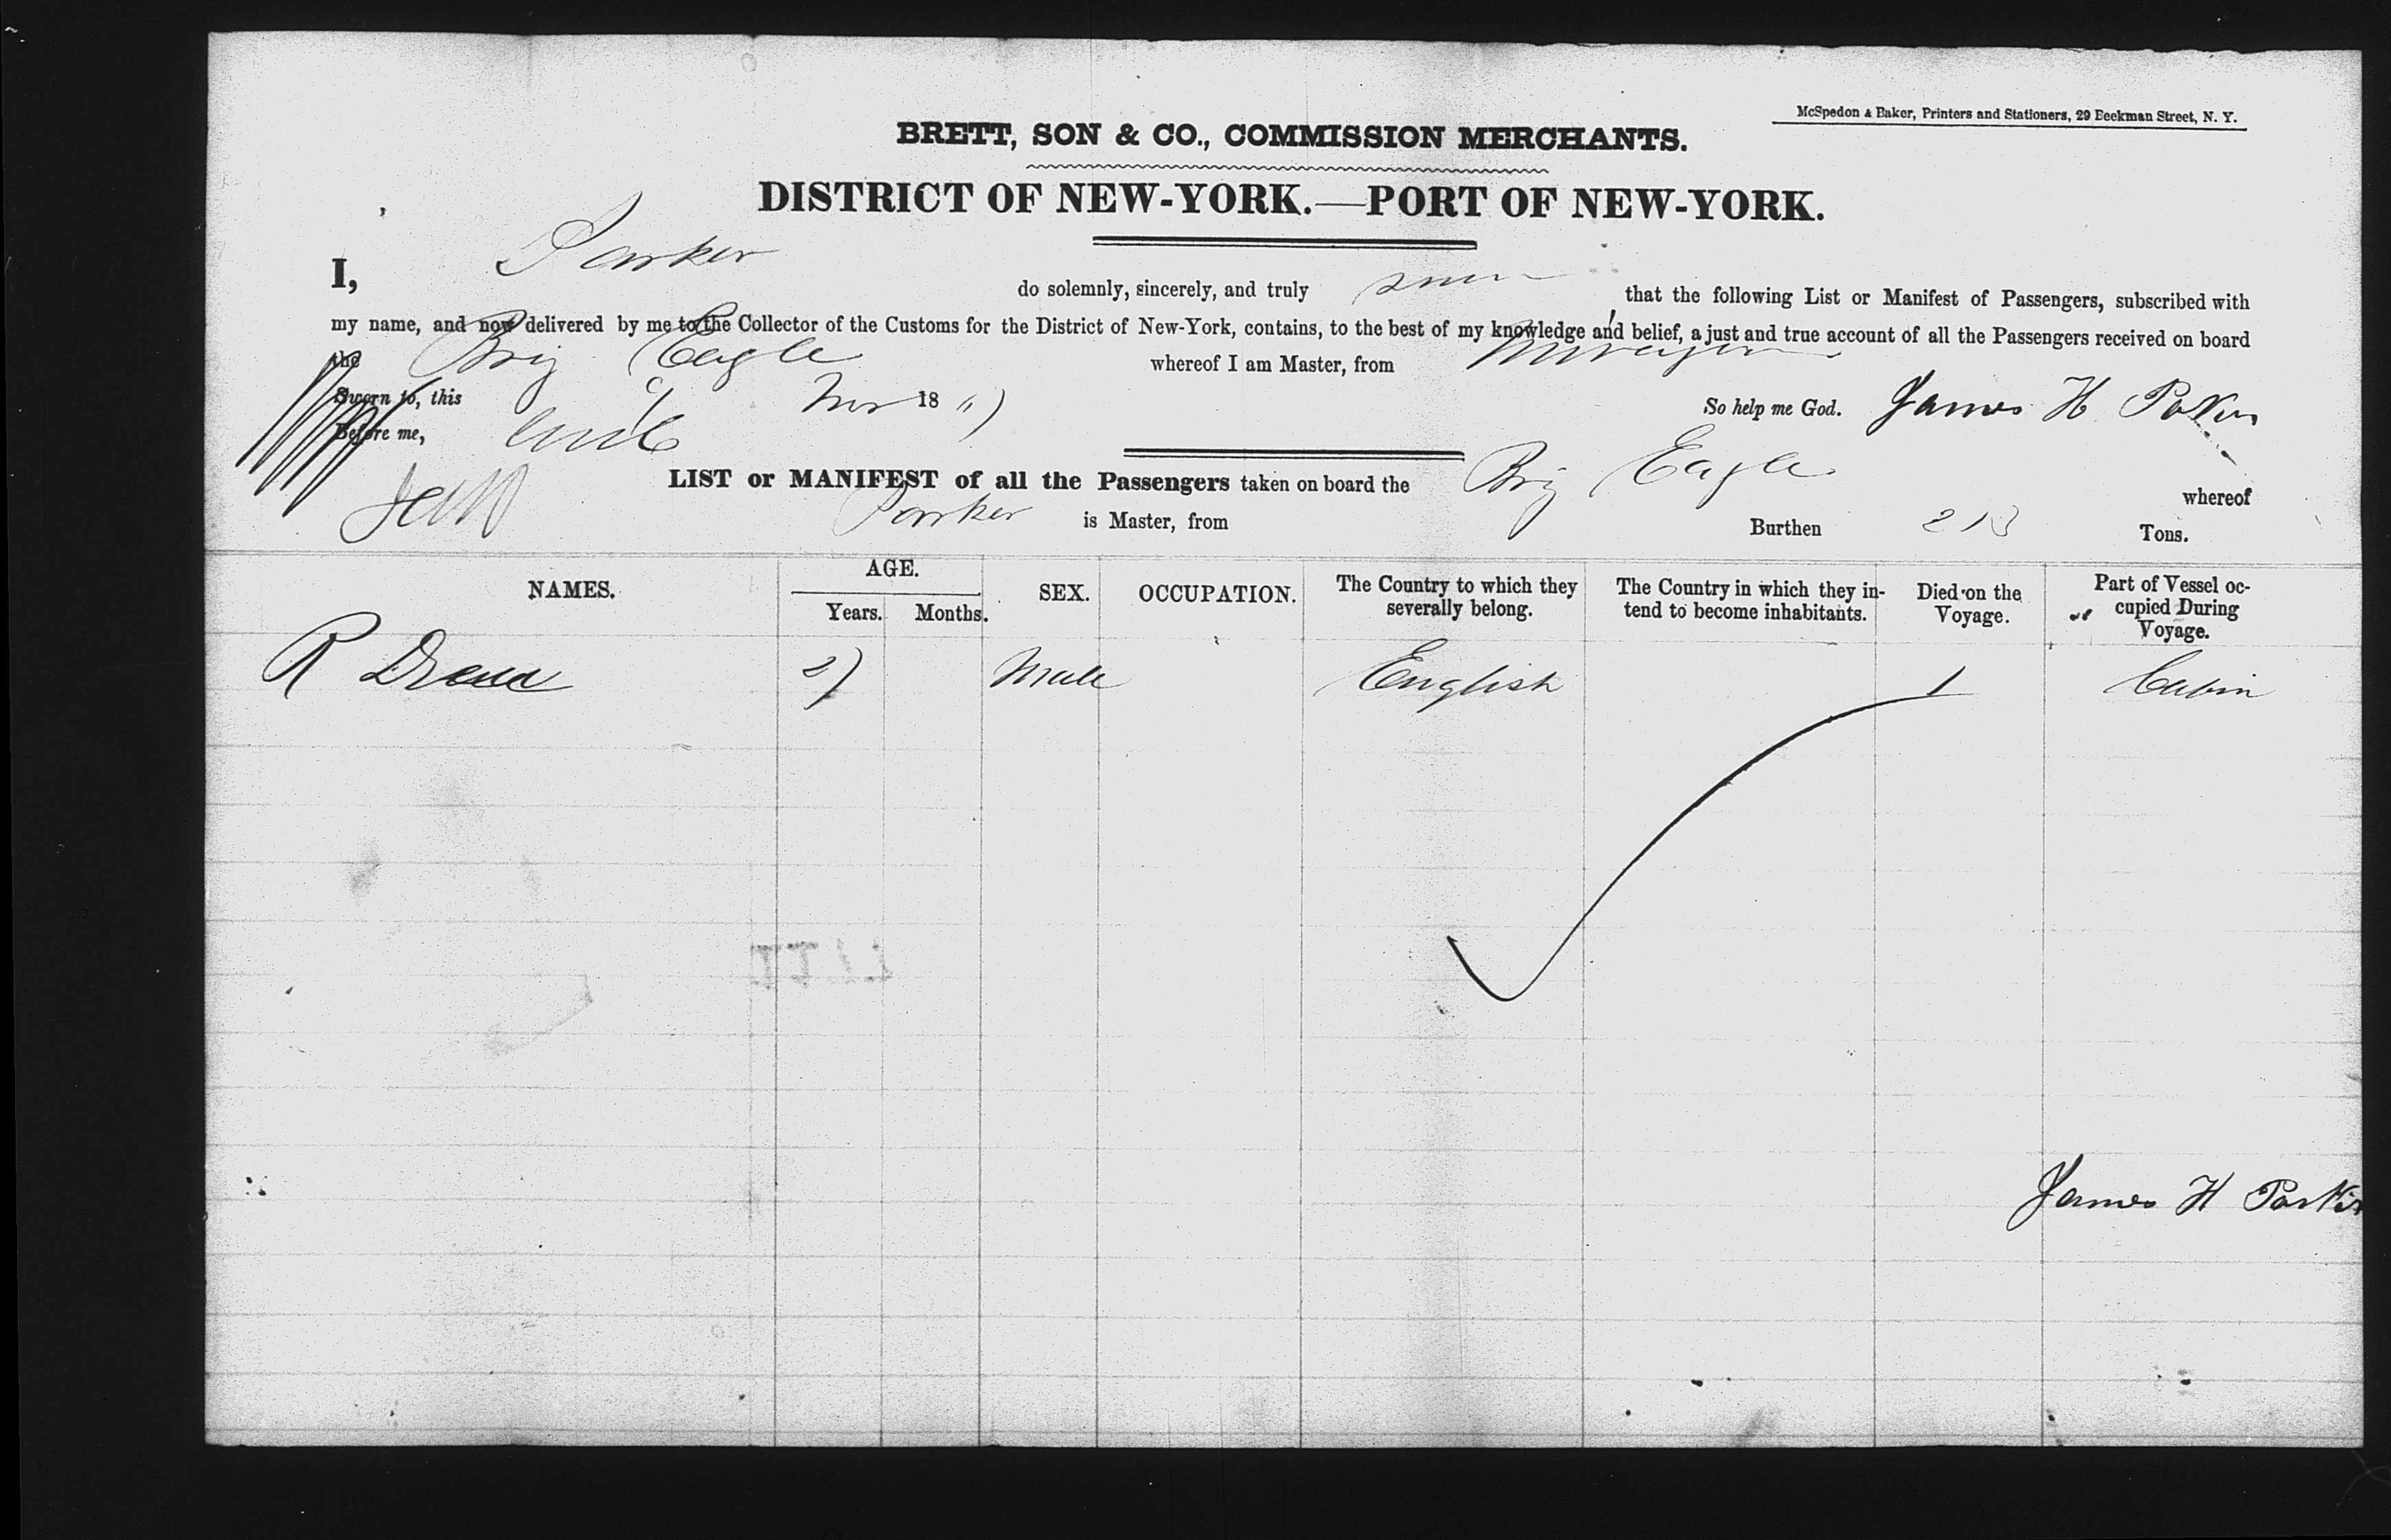 McSpedon & Baker, Printers and Stationers, 29 Beekman Street, N. Y.
BRETT, SON & CO., COMMISSION MERCHANTS.
DISTRICT OF NEW-YORK.—PORT OF NEW-YORK.
I, Parker do solemnly, sincerely, and truly that the following List or Manifest of Passengers, subscribed with
my name, and now delivered by me to the Collector of the Customs for the District of New-York, contains, to the best of my knowledge and belief, a just and true account of all the Passengers received on board
the Brig Eagle whereof I am Master, from
Sworn to, this Nov 18 So help me God. James H Parker
Before me,
LIST or MANIFEST of all the Passengers taken on board the Brig Eagle whereof
Parker is Master, from Burthen 213 Tons.
NAMES. AGE. Years. Months. SEX. OCCUPATION. The Country to which they severally belong. The Country in which they intend to become inhabitants. Died on the Voyage. Part of Vessel occupied During Voyage.
R Male English Cabin
James H Parker